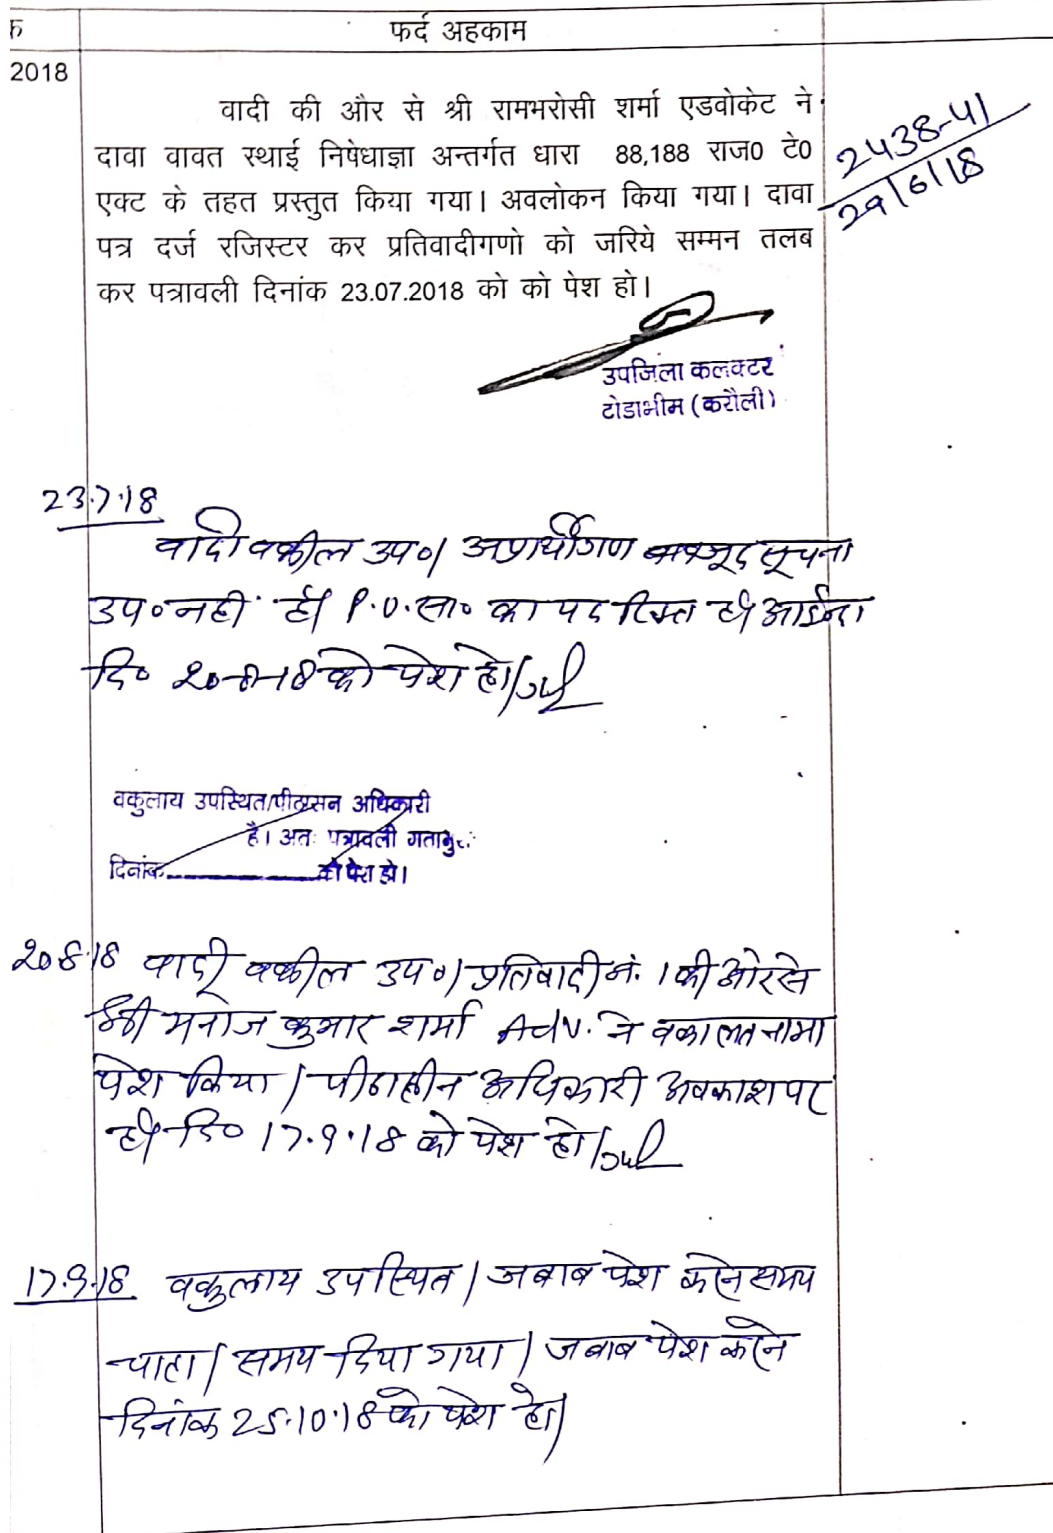 फर्द अहकाम
2018
वादी की और से श्री रामभरोसी शर्मा एडवोकेट ने
दावा वावत स्थाई निषेधाज्ञा अन्तर्गत धारा 88,188 राज0 टे0
एक्ट के तहत प्रस्तुत किया गया। अवलोकन किया गया। दावा
पत्र दर्ज रजिस्टर कर प्रतिवादीगणो को जरिये सम्मन तलब
कर पत्रावली दिनांक 23.07.2018 को को पेश हो।
2438-41
29/6/18
उपजिला कलक्टर
टोडाभीम (करौली)
23.7.18
वादी वकील उप०। अप्रार्थीगण बावजूद सूचना
उप० नहीं है। P.O. सा० का पद रिक्त है। आईन्दा
दि० 20-8-18 को पेश हो।
वकुलाय उपस्थित/पीठासन अधिकारी
है। अतः पत्रावली गतानु
दिनांक को पेश हो।
20.8.18 वादी वकील उप०। प्रतिवादी नं. 1 की ओर से
श्री मनोज कुमार शर्मा Adv. ने वकालतनामा
पेश किया। पीठासीन अधिकारी अवकाश पर
है। दि० 17.9.18 को पेश हो।
17.9.18 वकुलाय उपस्थित। जबाब पेश करने समय
चाहा। समय दिया गया। जबाब पेश करने
दिनांक 25.10.18 को पेश हो।